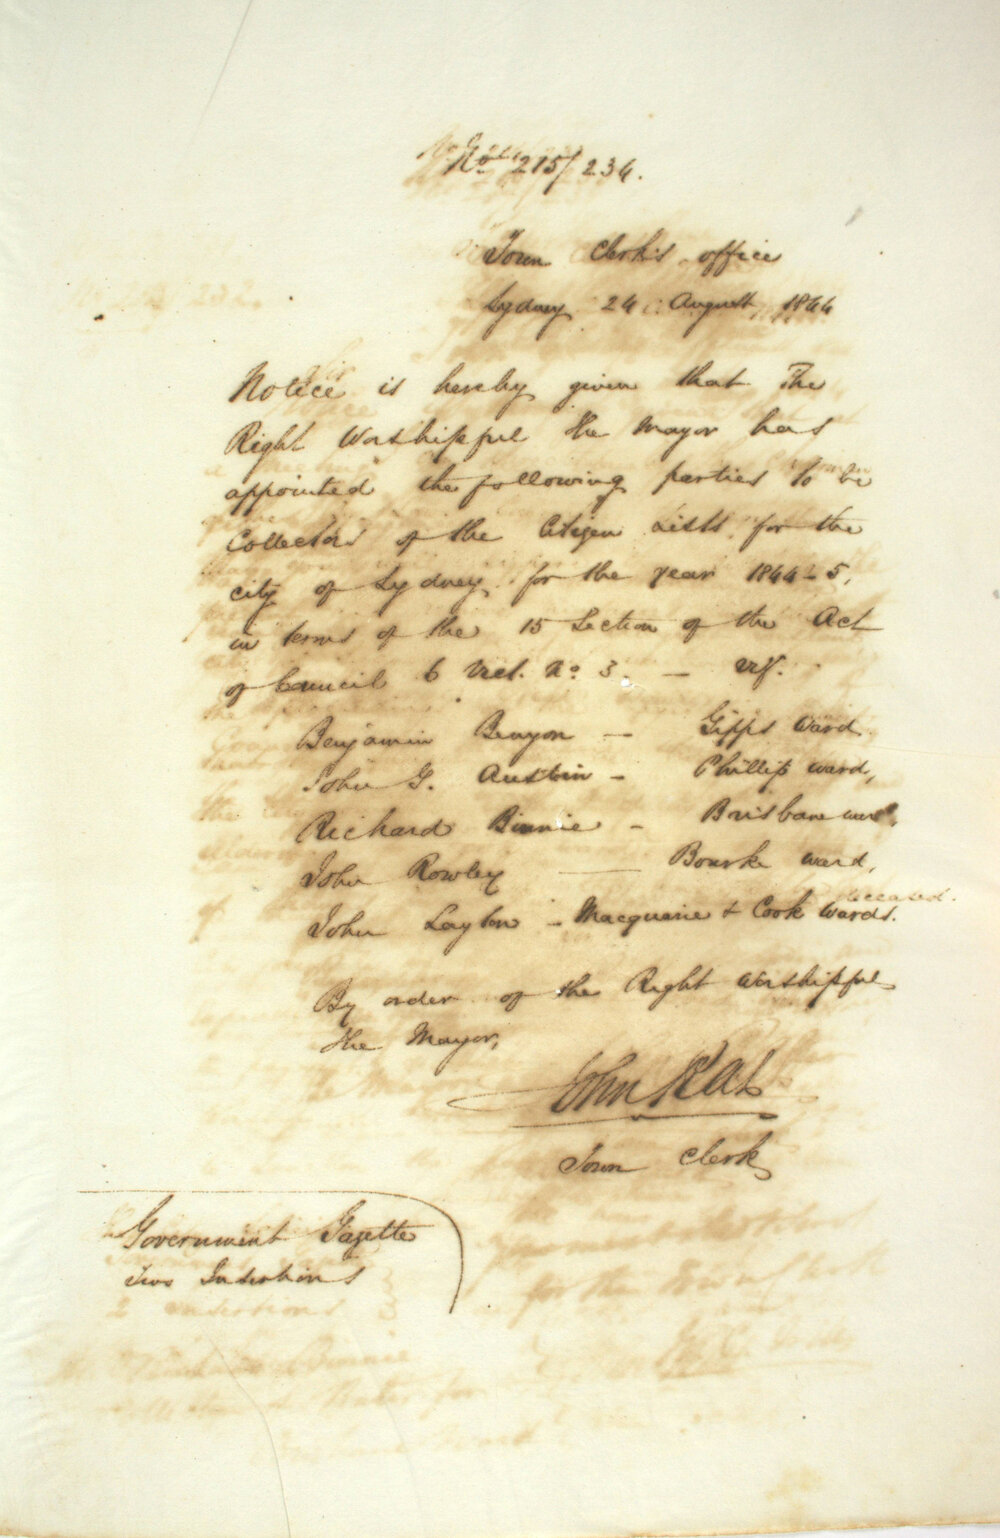 No. 215/234.
Town Clerk's office
Sydney 24 August 1844
Notice is hereby given that The
Right Worshipful the Mayor has
appointed the following parties to be
Collectors of the Citizen Lists for the
city of Sydney for the year 1844-5,
in terms of the 15 Section of the Act
of Council 6 Vict. No. 3. — viz.
Benjamin Benyon — Gipps Ward
John G. Austin - Phillip ward,
Richard Binnie - Brisbane ward,
John Rowley — Bourke ward,
John Layton - Macquarie & Cook Wards.
By order of the Right Worshipful
the Mayor,
John Rae
Town Clerk
Government Gazette
Two Insertions